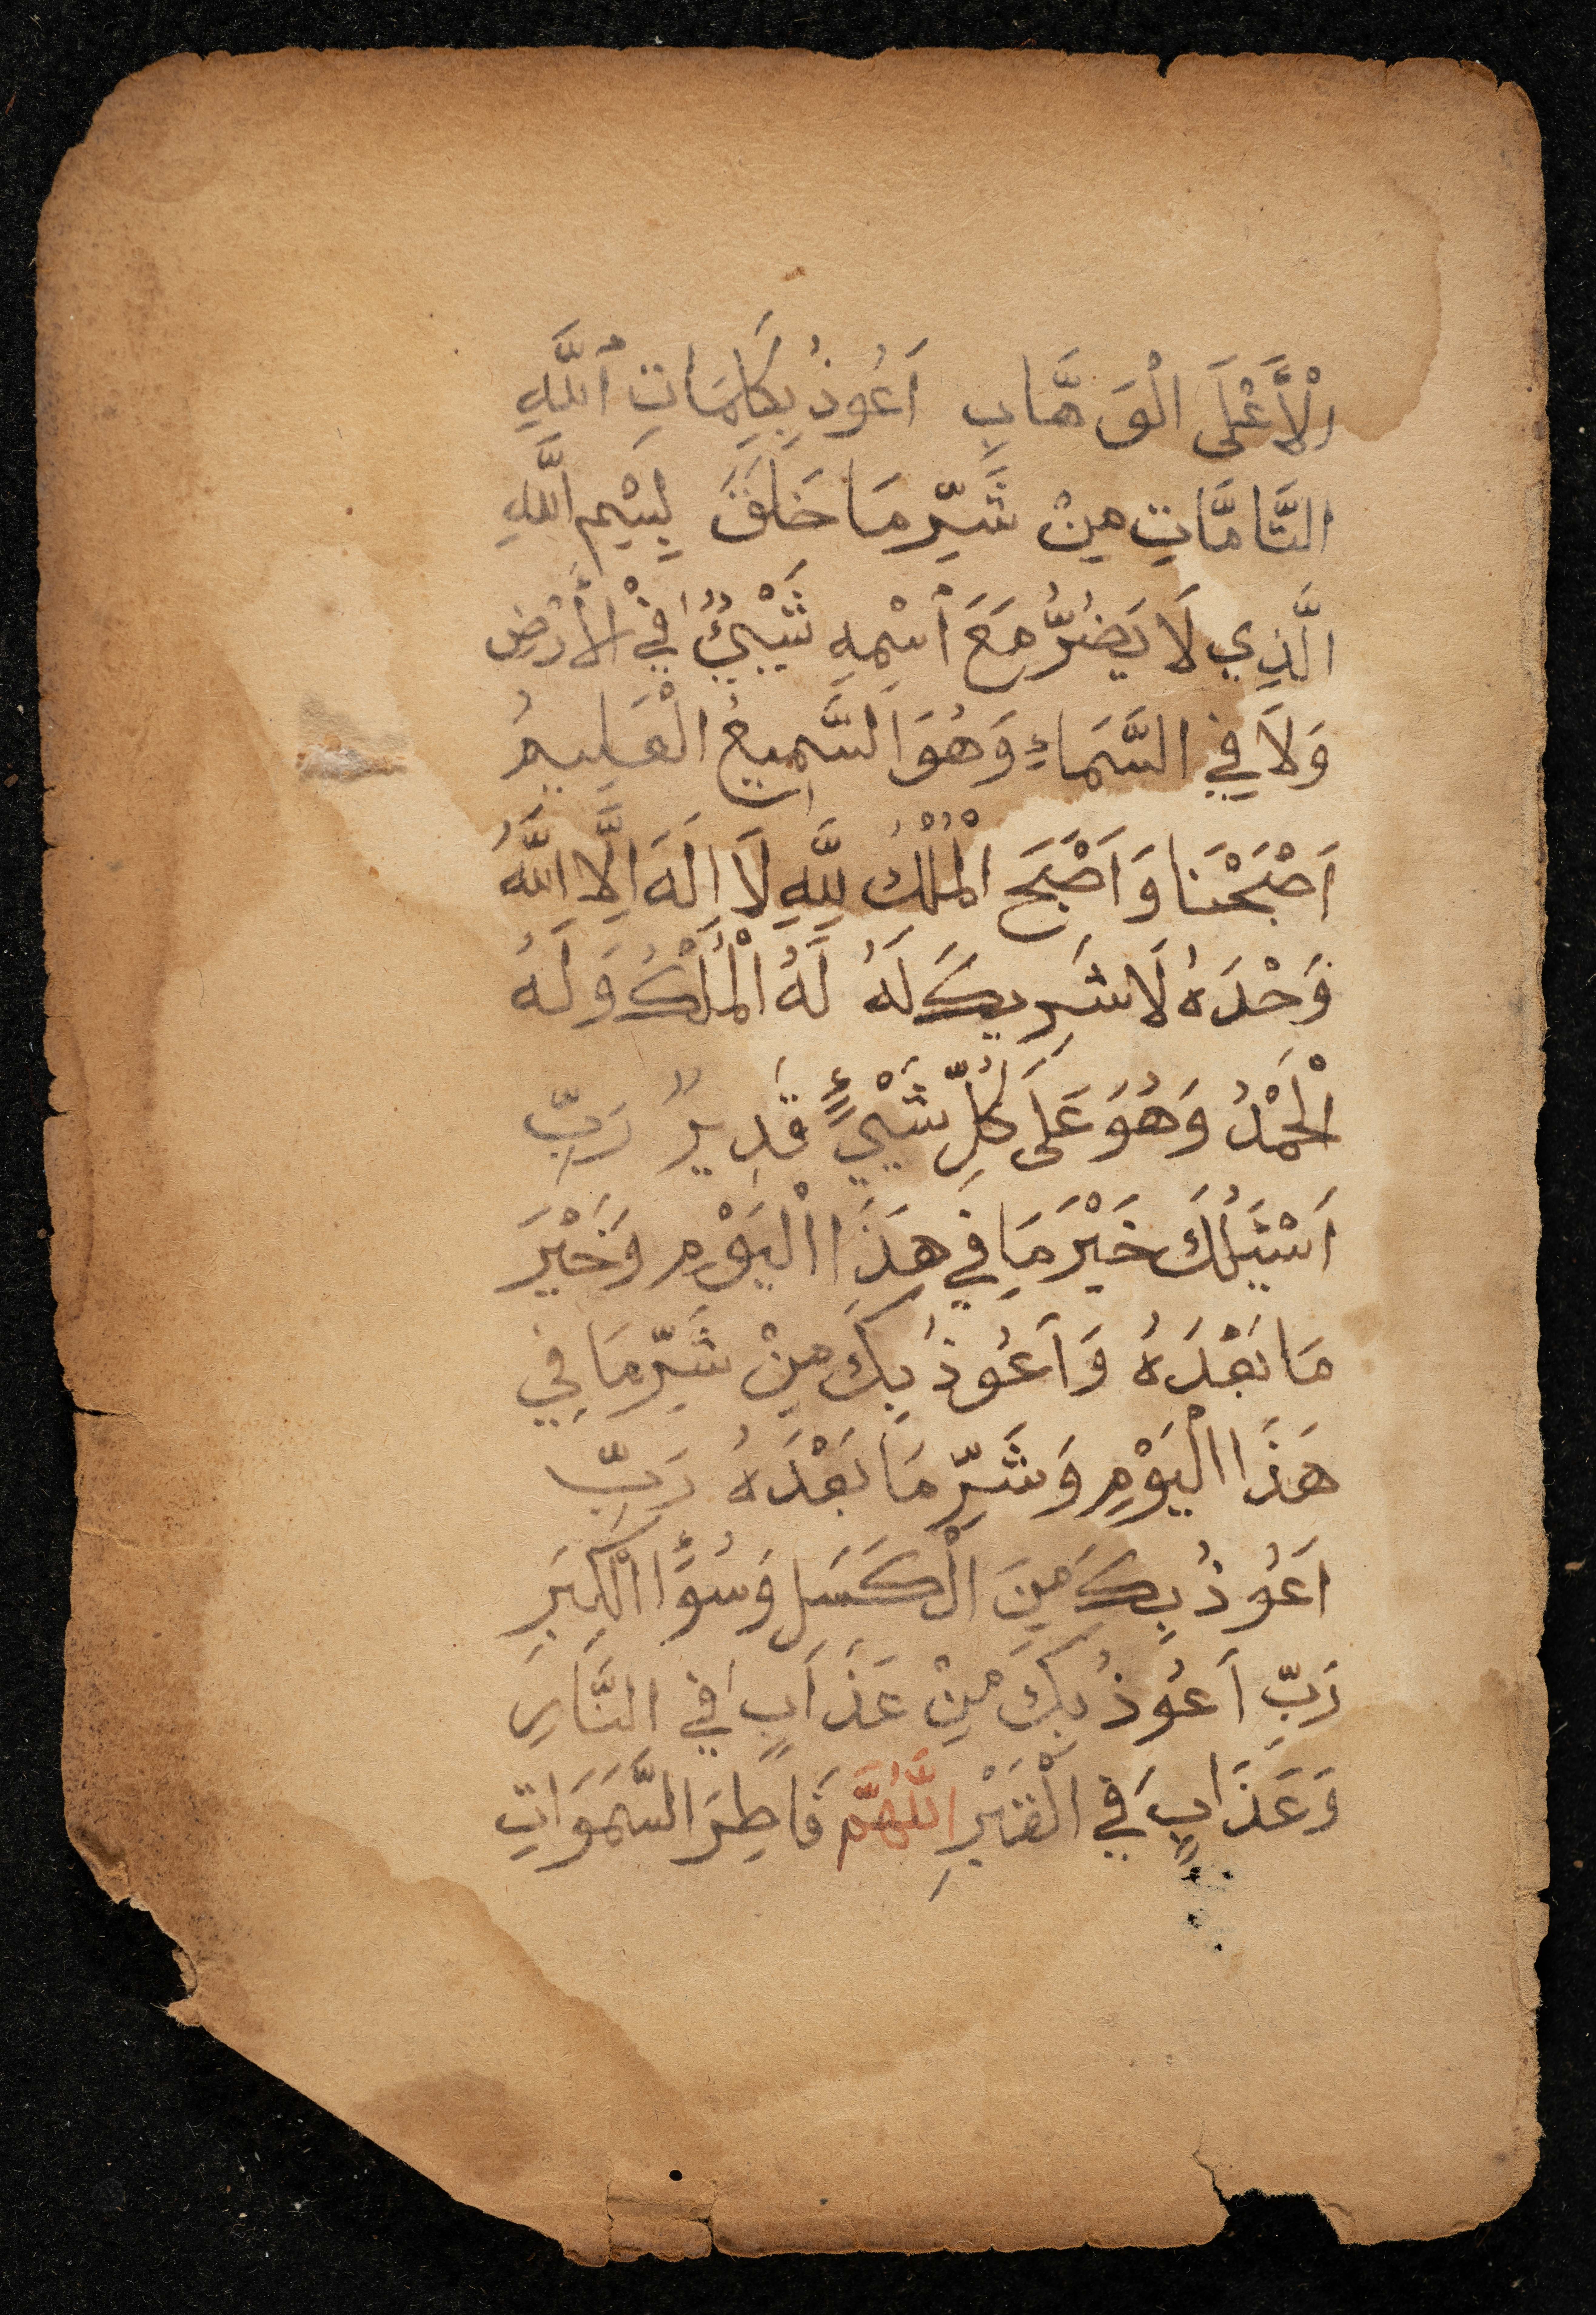 الْأَعْلَى الْوَهَّابِ اَعُوذُ بِكَلِمَاتِ اللَّهِ
التَّامَّاتِ مِنْ شَرِّ مَا خَلَقَ بِسْمِ اللَّهِ
الَّذِي لَا يَضُرُّ مَعَ اسْمِهِ شَيْئٌ فِي الْأَرْضِ
وَلَا فِي السَّمَاءِ وَهُوَ السَّمِيعُ الْعَلِيمُ
اَصْبَحْنَا وَاَصْبَحَ الْمُلْكُ لِلَّهِ لَا اِلَهَ اِلَّا اللَّهُ
وَحْدَهُ لَا شَرِيكَ لَهُ لَهُ الْمُلْكُ وَلَهُ
الْحَمْدُ وَهُوَ عَلَى كُلِّ شَيْئٍ قَدِيرٌ رَبِّ
اَسْئَلُكَ خَيْرَ مَا فِي هَذَا الْيَوْمِ وَخَيْرَ
مَا بَعْدَهُ وَاَعُوذُ بِكَ مِنْ شَرِّ مَا فِي
هَذَا الْيَوْمِ وَشَرِّ مَا بَعْدَهُ رَبِّ
اَعُوذُ بِكَ مِنَ الْكَسَلِ وَسُوًا الْكِبَرِ
رَبِّ اَعُوذُ بِكَ مِنْ عَذَابٍ فِي النَّارِ
وَعَذَابٍ فِي الْقَبْرِ اللَّهُمَّ فَاطِرَ السَّمَوَاتِ